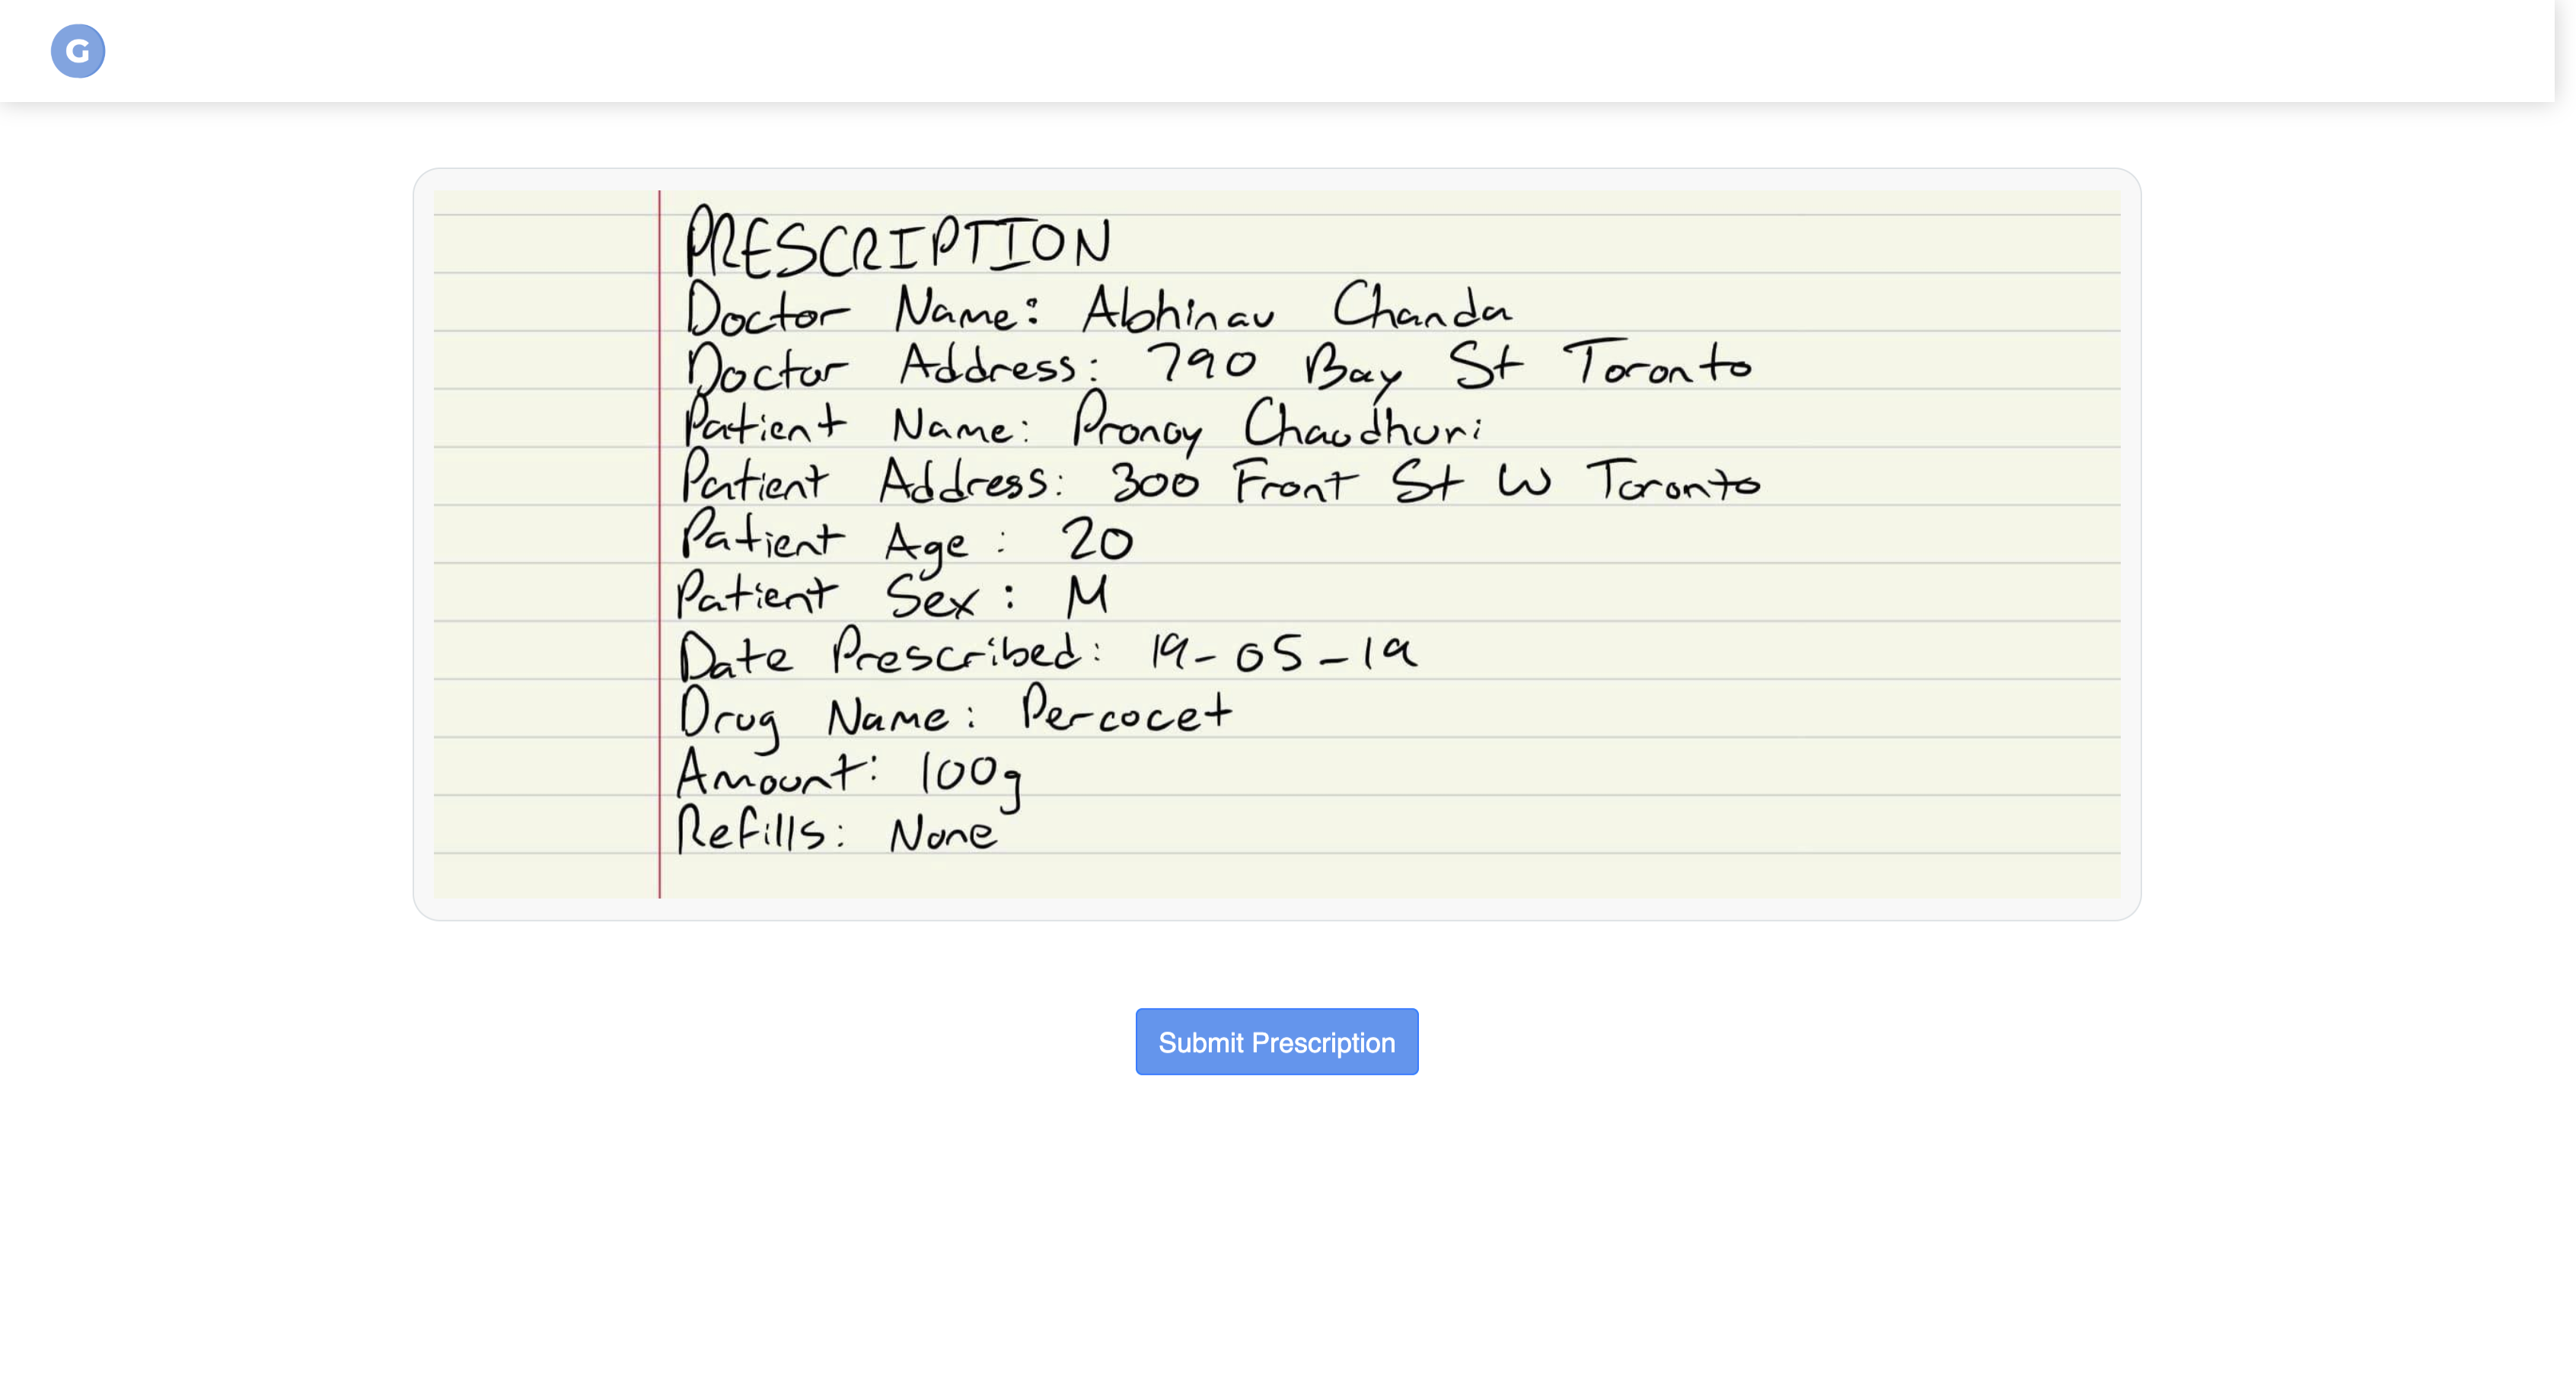 G
PRESCRIPTION
Doctor Name: Abhinav Chanda
Doctor Address: 790 Bay St Toronto
Patient Name: Pronoy Chaudhuri
Patient Address: 300 Front St W Toronto
Patient Age: 20
Patient Sex: M
Date Prescribed: 19-05-19
Drug Name: Percocet
Amount: 100g
Refills: None
Submit Prescription